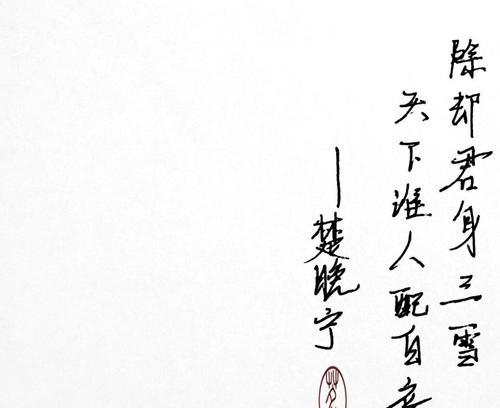 除却君身三雪
天下谁人配白
—楚晚宁